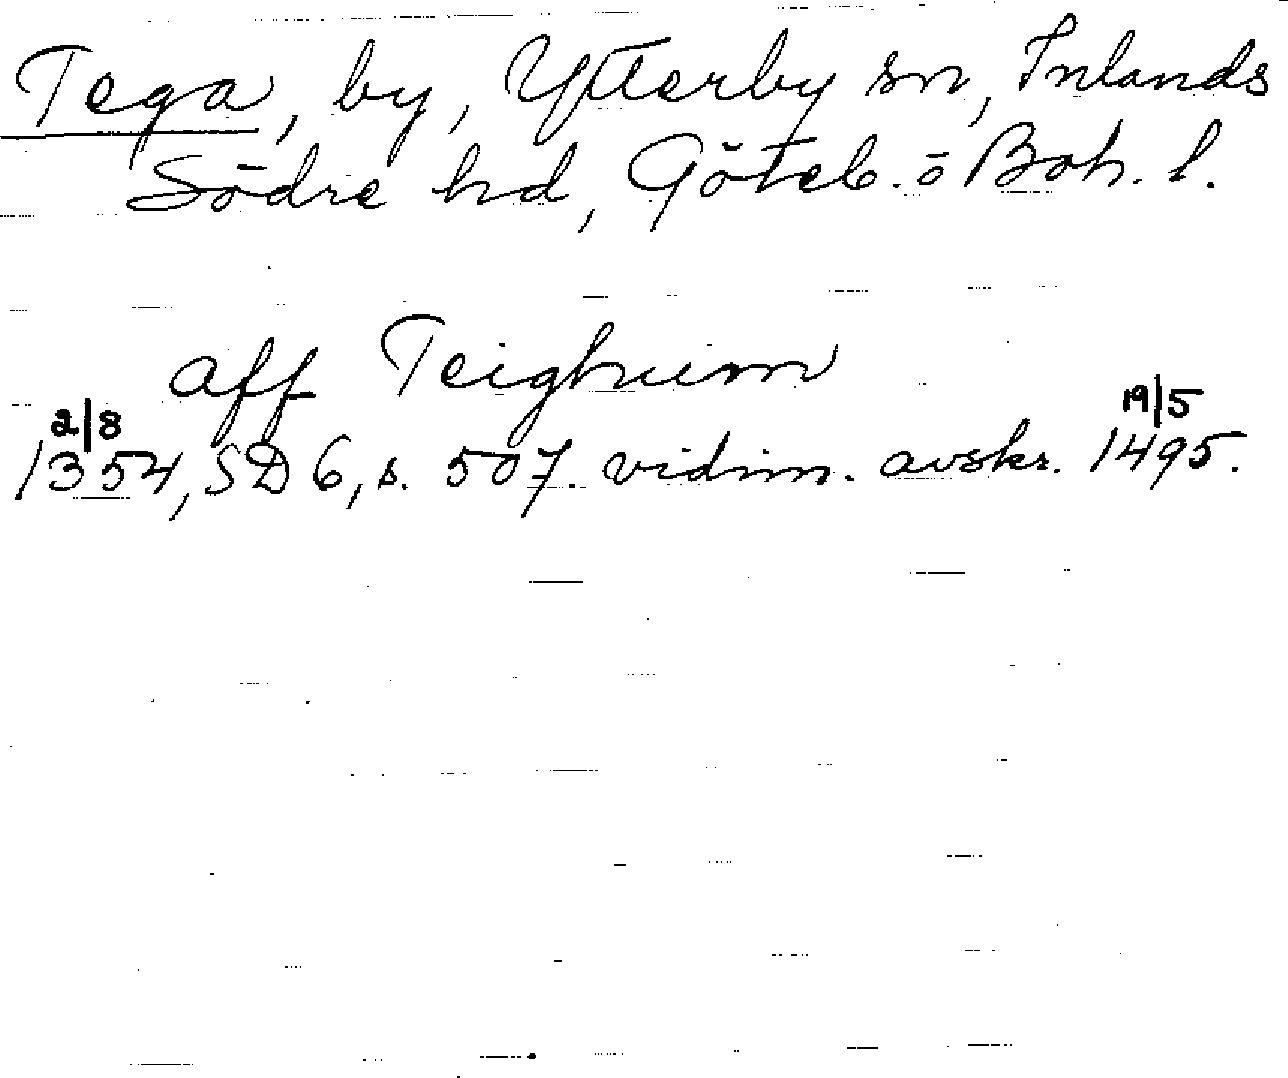 Tega, by, Ytterby sn, Inlands
Södre hd, Göteb. o Boh. l.
aff Teighum
2/8 19/5
1354, SD 6, s. 507. vidim. avskr. 1495.